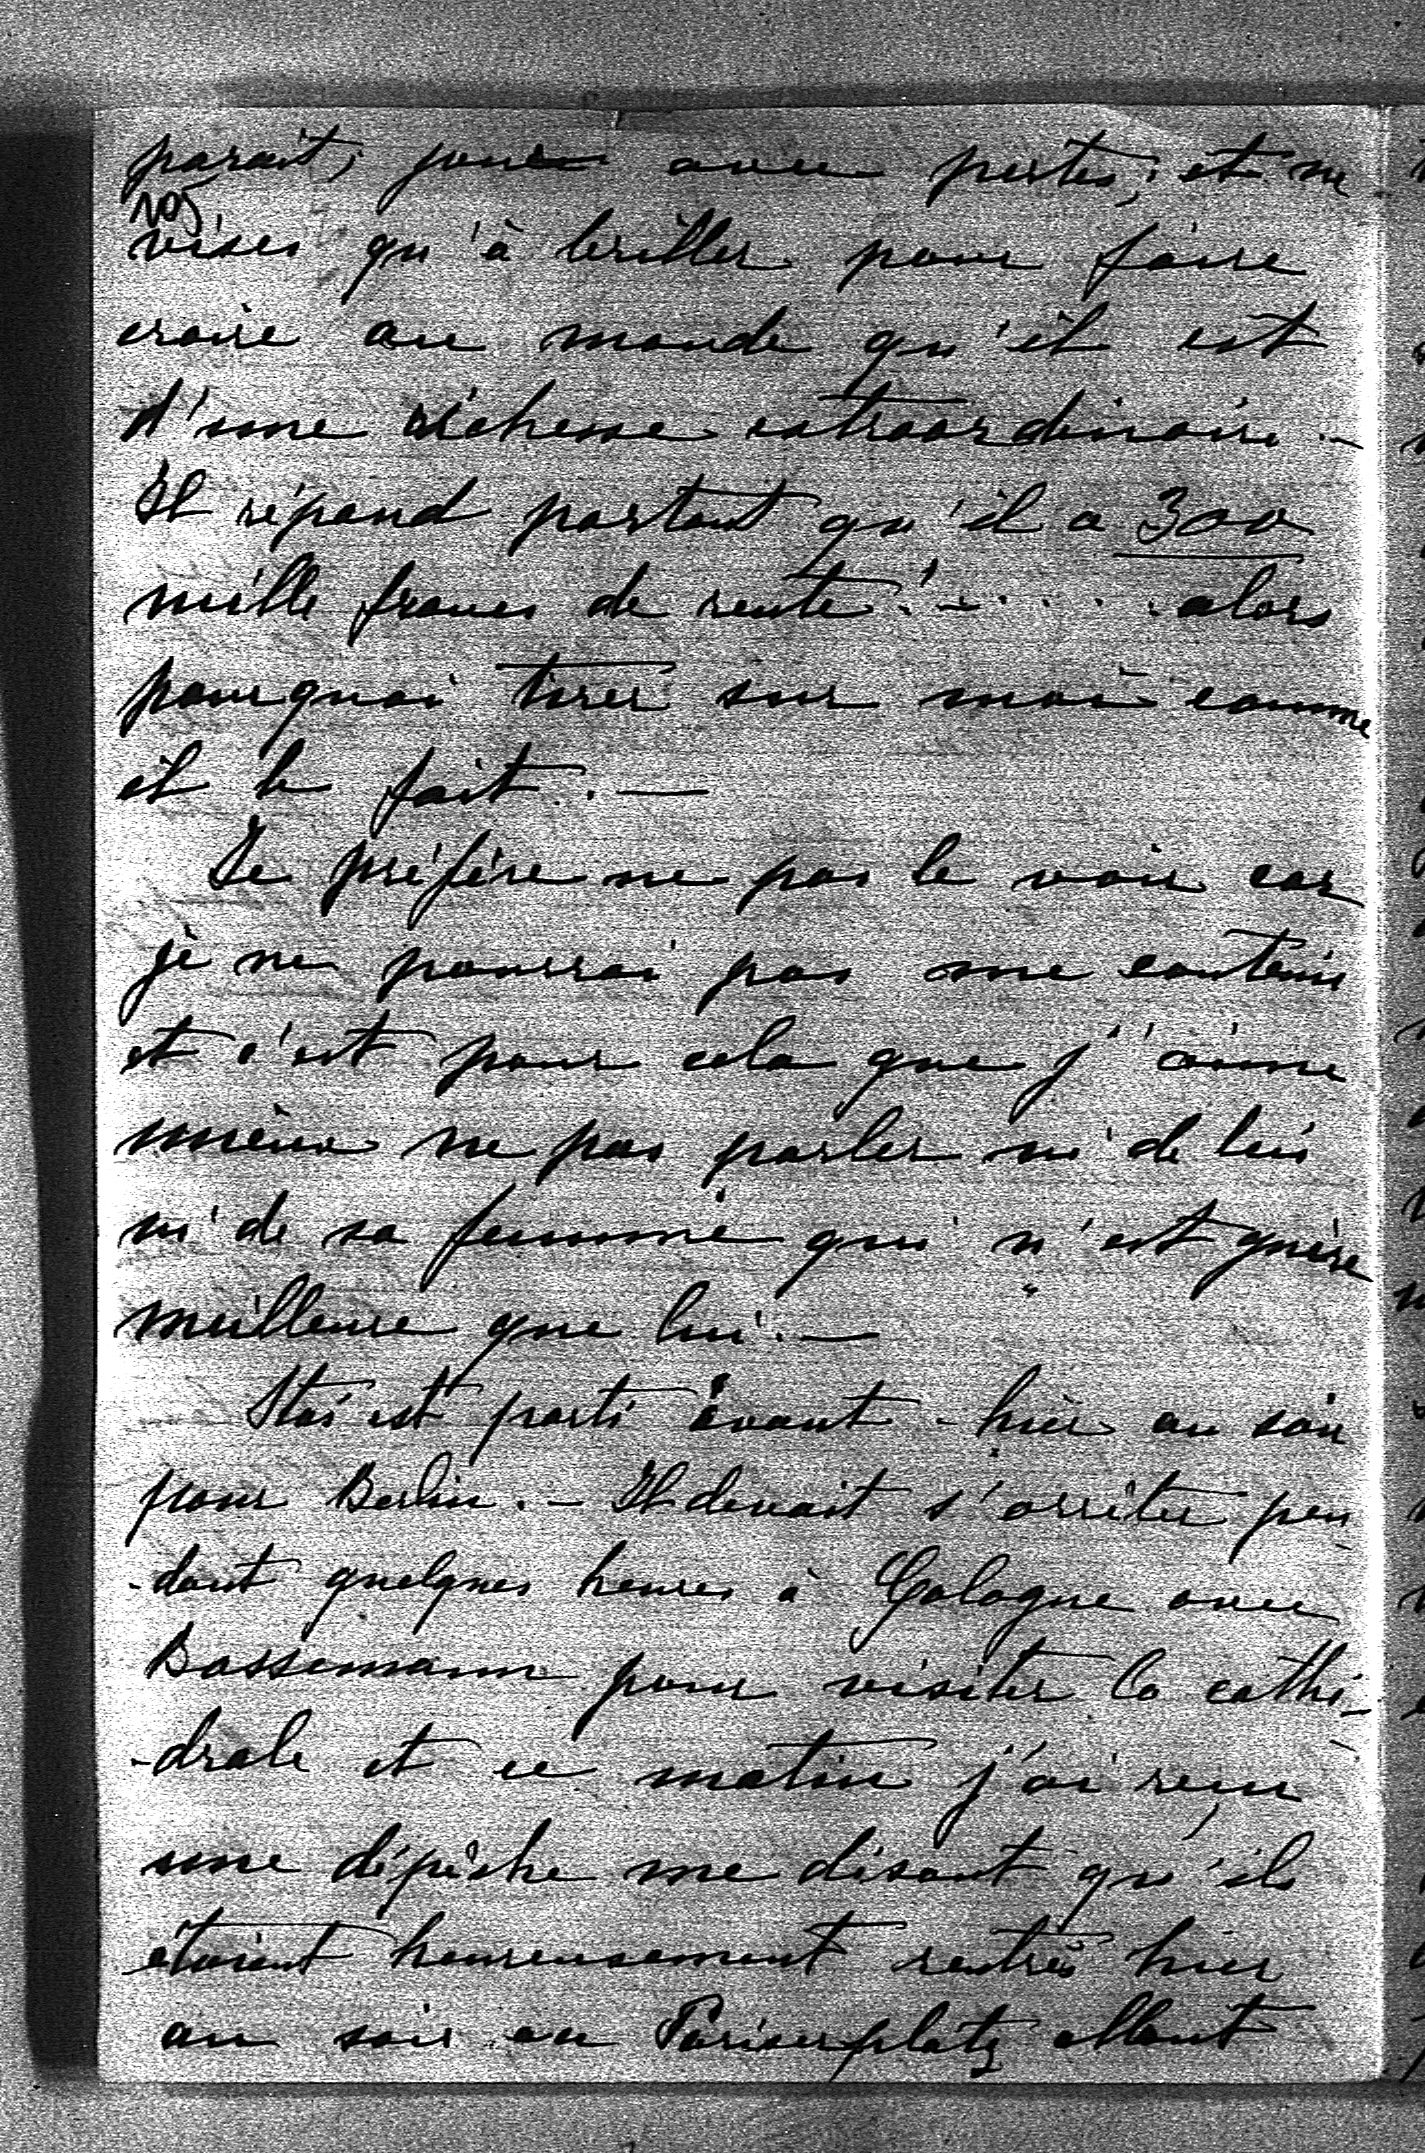 parait; jouer avec pertes; et ne
vises qu'à briller pour faire
croire au monde qu'il est
d'une richesse extraordinaire. —
Il répand partout qu'il a 300
mille francs de rente! - . . . . alors
pourquoi tirer sur moi comme
il le fait. —
Je préfère ne pas le voir car
je ne pourrai pas me contenir
et c'est pour cela que j'aime
mieux ne pas parler ni de lui
ni de sa femme qui n'est guère
meilleure que lui. —
Stas est parti avant-hier au soir
pour Berlin. — Il devait s'arrêter pen
-dant quelques heures à Cologne avec
Bassemann pour visiter la cathé-
-drale et ce matin j'ai reçu
une dépêche me disant qu'ils
étaient heureusement rentrés hier
au soir au Pariserplatz allant